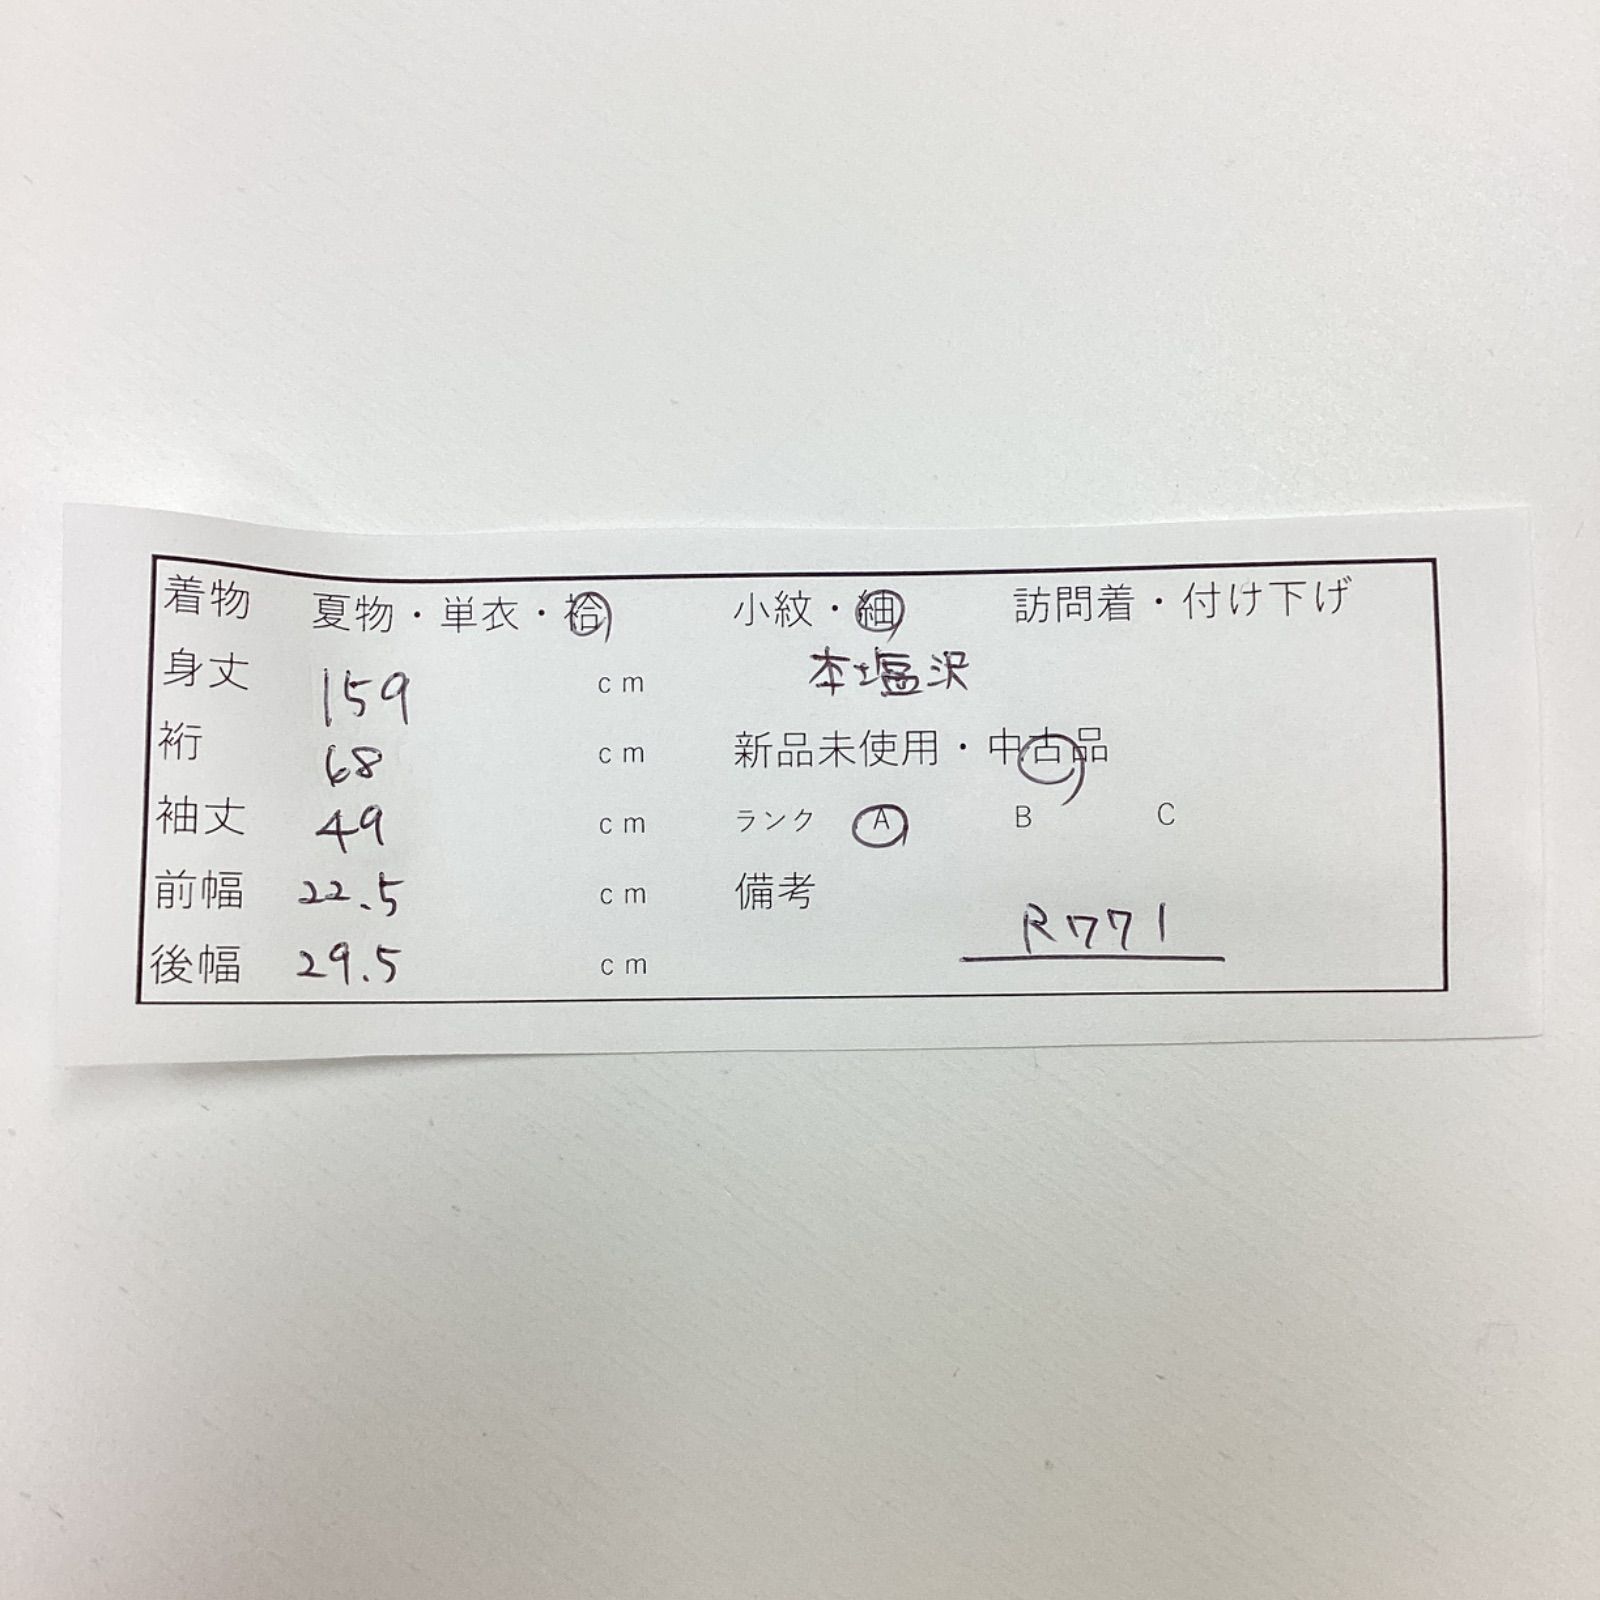 着物 夏物・単衣・袷 小紋・紬 訪問着・付け下げ
身丈 159 cm 本塩沢
裄 68 cm 新品未使用・中古品
袖丈 49 cm ランク A B C
前幅 22.5 cm 備考
後幅 29.5 cm R771